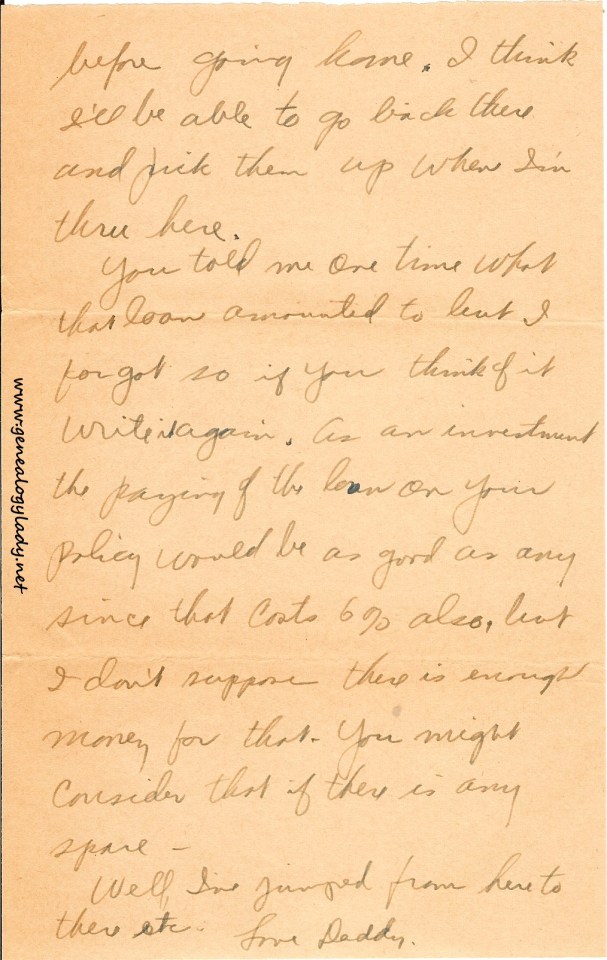 before going home. I think
I'll be able to go back there
and pick them up when I'm
thru here.
You told me one time what
that loan amounted to but I
forgot so if you think of it
write it again. As an investment
the paying of the loan on your
policy would be as good as any
since that costs 6% also, but
I don't suppose there is enough
money for that. You might
consider that if there is any
spare –
Well, I've jumped from here to
there etc. Love Daddy.
www.genealogylady.net